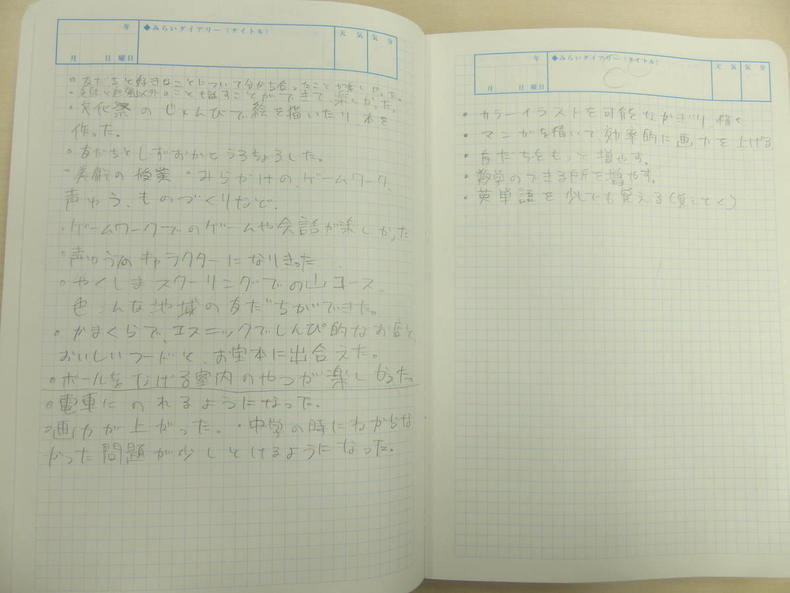 年
◆みらいダイアリー(タイトル)
天気
気分
月 日 曜日
・友だちと好きなことについて分かち合ったことが楽しかった。
こと も話すことができて楽しかった。
・文化祭のじゅんびで絵を描いたり、本を
作った。
・友だちとしずおかとうろちょろした。
・美術の授業 ・みらかけの、ゲームワーク、
声ゆう、ものづくりなど、
・ゲームワークでのゲームや会話が楽しかった
・声ゆうのキャラクターになりきった
・やくしまスクーリングでの山コース、
色んな地域の友だちができた。
・かまくらで、エスニックでしんぴ的なお店と、
おいしいフードと、お宝本に出合えた。
・ボールをなげる室内のやつが楽しかった。
・電車にのれるようになった。
・画力が上がった。・中学の時にわからな
かった問題が少しとけるようになった。
年
◆みらいダイアリー(タイトル)
天気
気分
月 日 曜日
・カラーイラストを可能なかぎり、描く
・マンガを描いて効率的に画力を上げる
・友だちをもっと増やす。
・数学のできる所を増やす。
・英単語を少しでも覚える(